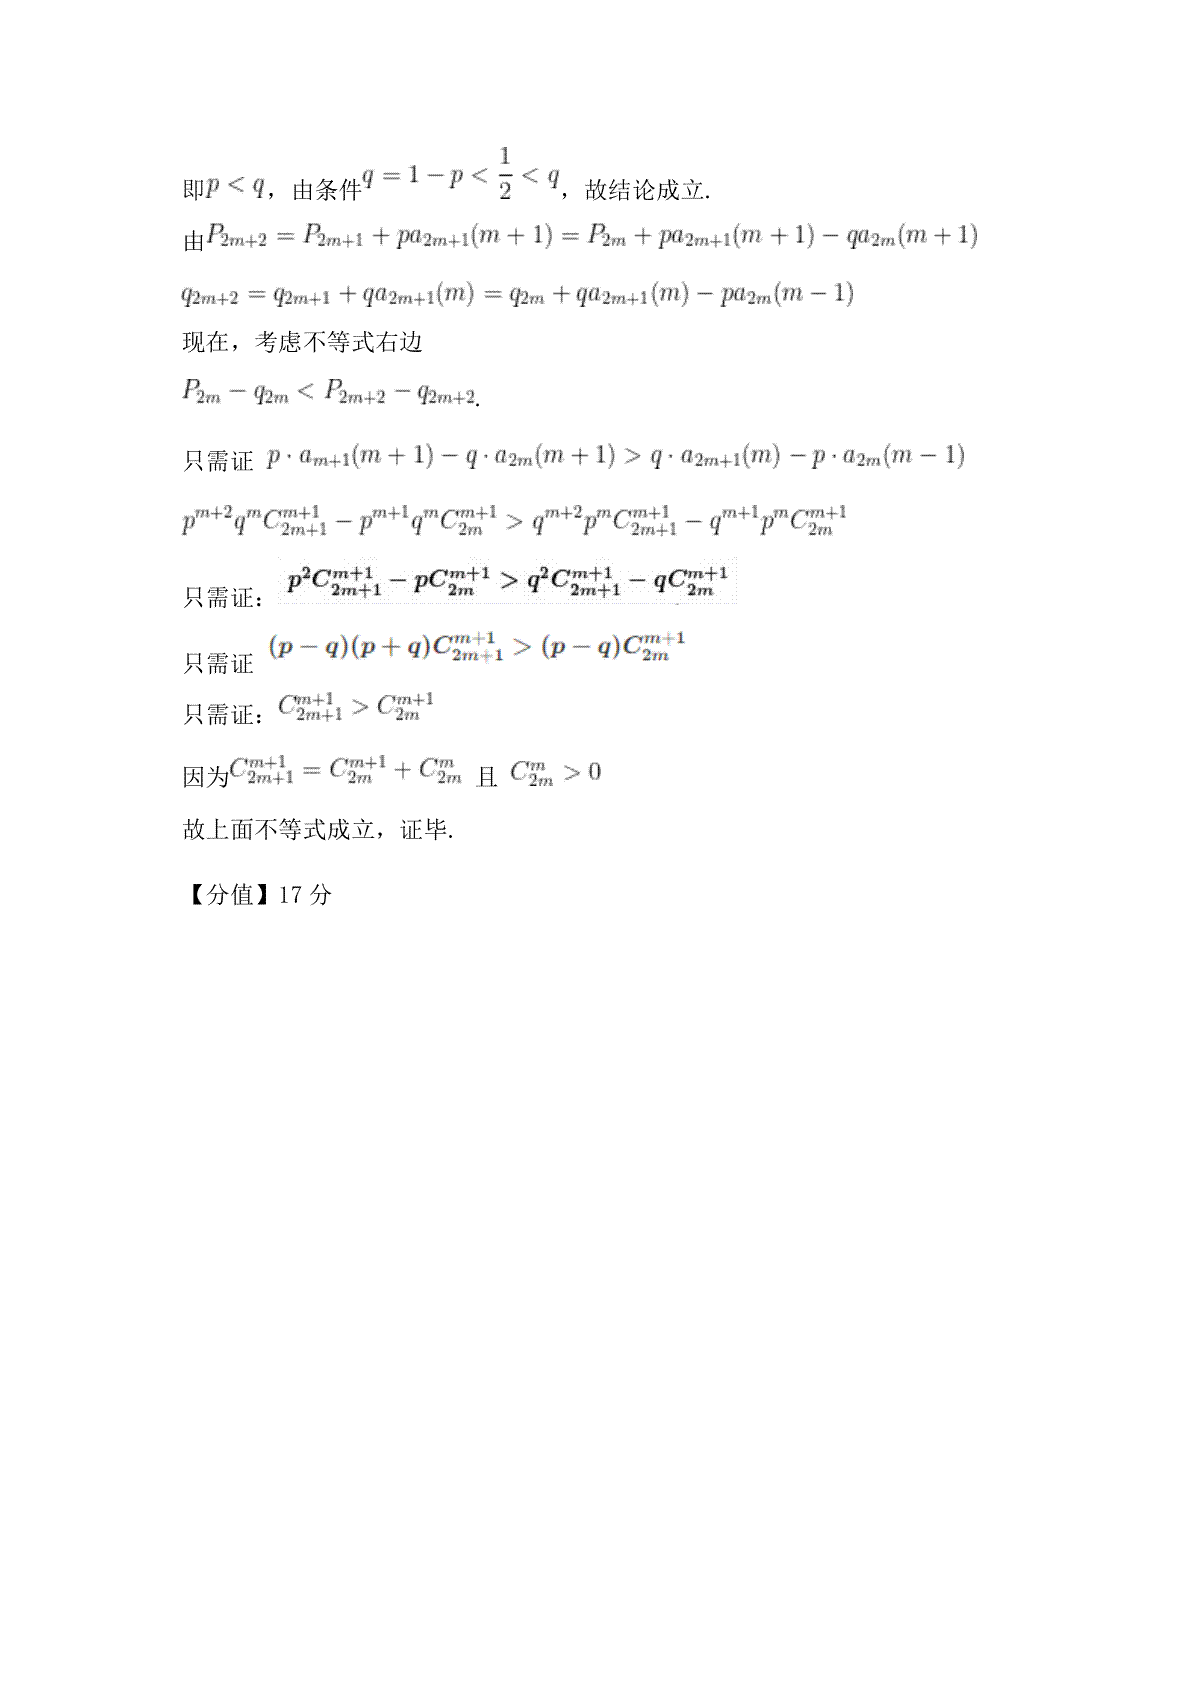 即$p<q$，由条件$q=1-p<\frac{1}{2}<q$，故结论成立.
由$P_{2m+2}=P_{2m+1}+pa_{2m+1}(m+1)=P_{2m}+pa_{2m+1}(m+1)-qa_{2m}(m+1)$
$q_{2m+2}=q_{2m+1}+qa_{2m+1}(m)=q_{2m}+qa_{2m+1}(m)-pa_{2m}(m-1)$
现在，考虑不等式右边
$P_{2m}-q_{2m}<P_{2m+2}-q_{2m+2}$.
只需证 $p\cdot a_{m+1}(m+1)-q\cdot a_{2m}(m+1)>q\cdot a_{2m+1}(m)-p\cdot a_{2m}(m-1)$
$p^{m+2}q^{m}C_{2m+1}^{m+1}-p^{m+1}q^{m}C_{2m}^{m+1}>q^{m+2}p^{m}C_{2m+1}^{m+1}-q^{m+1}p^{m}C_{2m}^{m+1}$
只需证：$p^{2}C_{2m+1}^{m+1}-pC_{2m}^{m+1}>q^{2}C_{2m+1}^{m+1}-qC_{2m}^{m+1}$
只需证 $(p-q)(p+q)C_{2m+1}^{m+1}>(p-q)C_{2m}^{m+1}$
只需证：$C_{2m+1}^{m+1}>C_{2m}^{m+1}$
因为$C_{2m+1}^{m+1}=C_{2m}^{m+1}+C_{2m}^{m}$ 且 $C_{2m}^{m}>0$
故上面不等式成立，证毕.
【分值】17 分